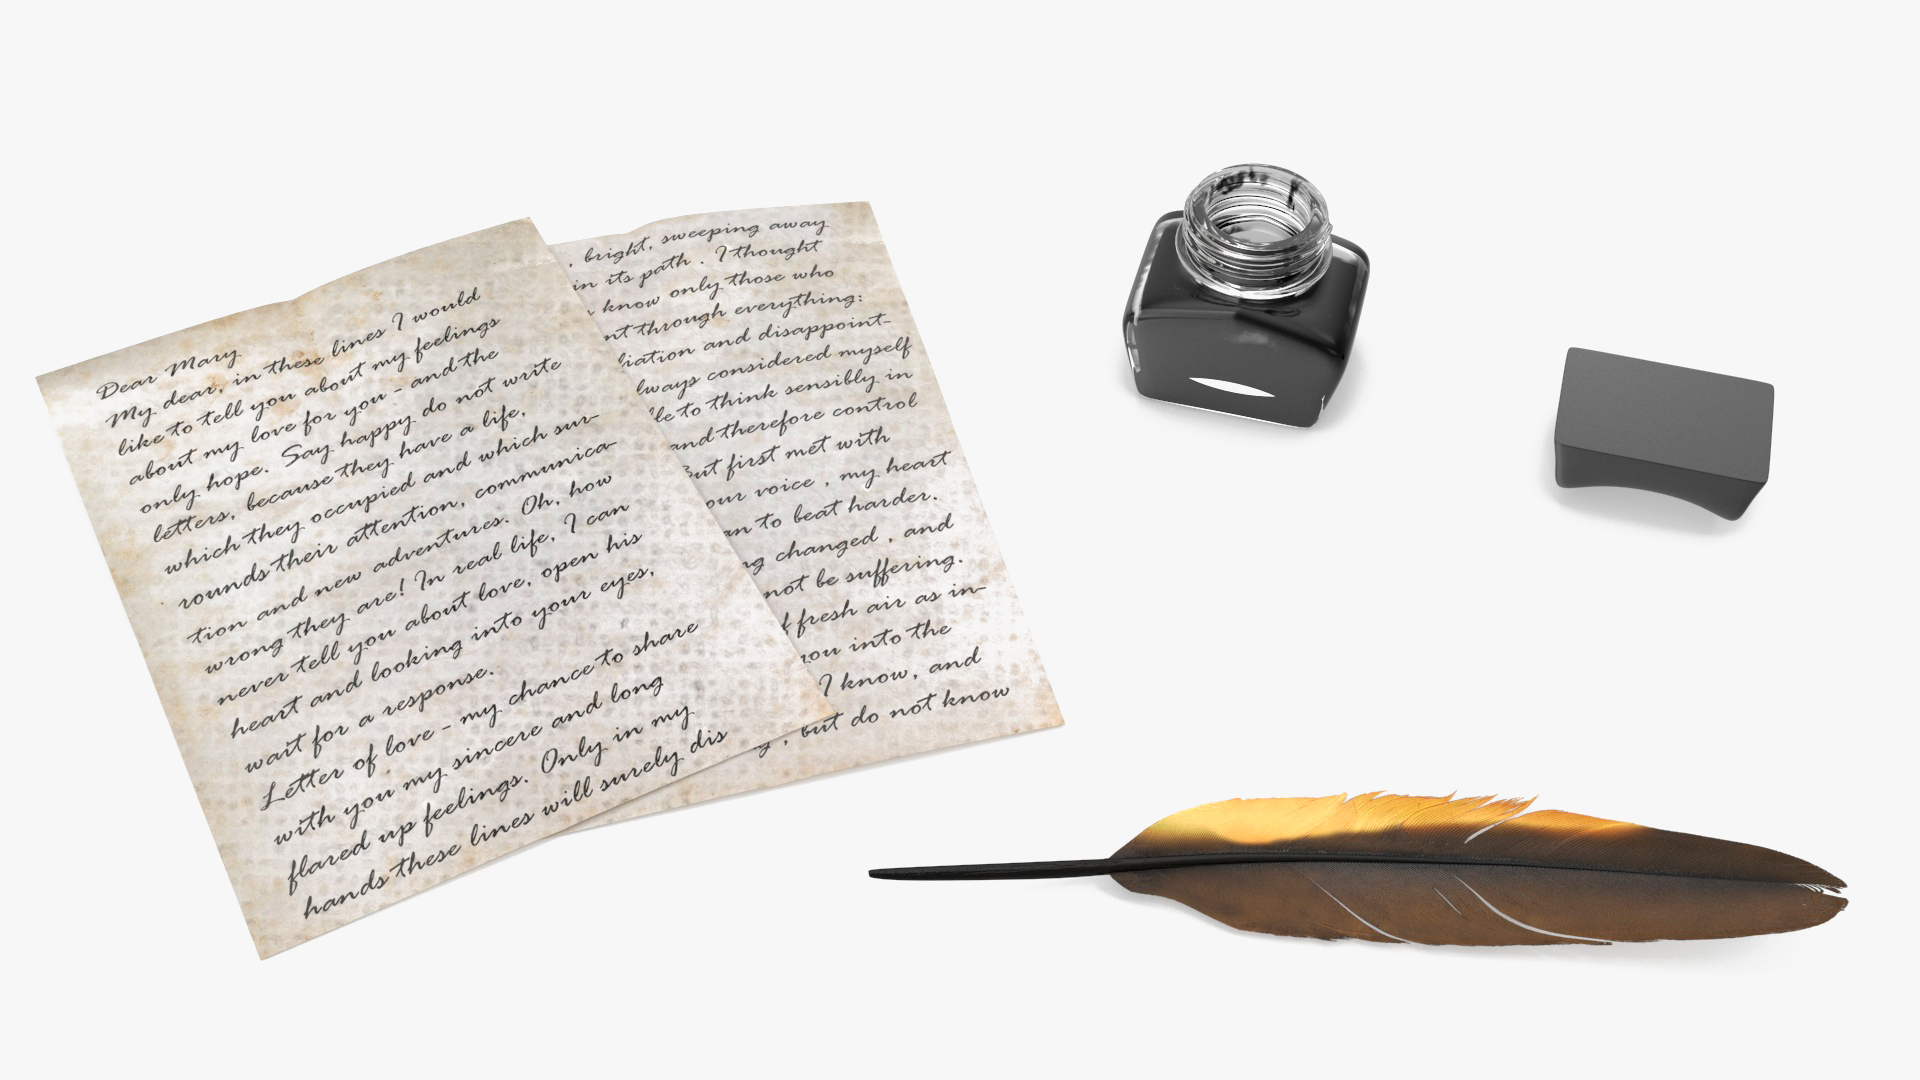 Dear Mary
My dear, in these lines I would
like to tell you about my feelings
about my love for you - and the
only hope. Say happy do not write
letters, because they have a life,
which they occupied and which sur-
rounds their attention, communica-
tion and new adventures. Oh, how
wrong they are! In real life, I can
never tell you about love, open his
heart and looking into your eyes,
wait for a response.
Letter of love - my chance to share
with you my sincere and long
flared up feelings. Only in my
hands these lines will surely dis
, bright, sweeping away
in its path . I thought
know only those who
nt through everything:
liation and disappoint-
lways considered myself
le to think sensibly in
and therefore control
But first met with
our voice , my heart
an to beat harder.
ng changed , and
not be suffering.
f fresh air as in-
you into the
I know, and
, but do not know